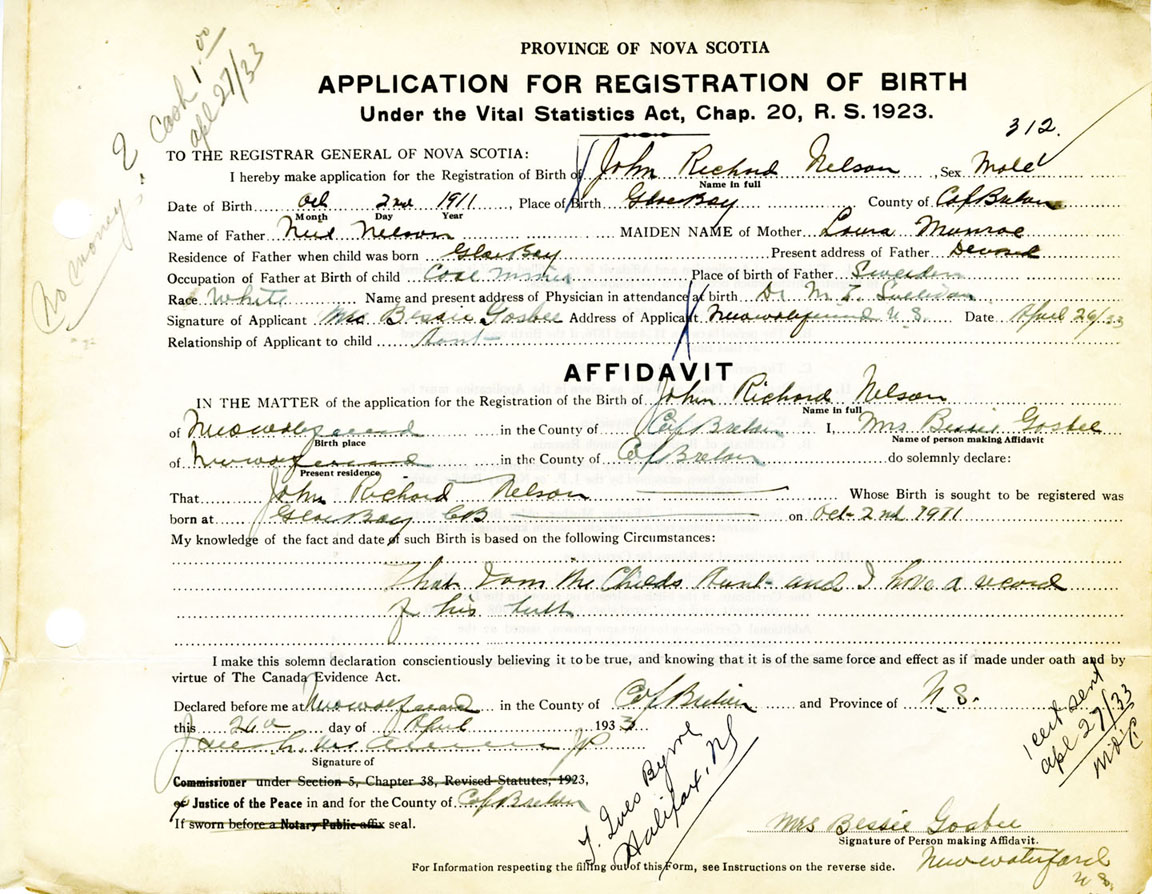 PROVINCE OF NOVA SCOTIA
APPLICATION FOR REGISTRATION OF BIRTH
Under the Vital Statistics Act, Chap. 20, R. S. 1923.
312.
Cash 1.00
apl 27/33
No money 2
TO THE REGISTRAR GENERAL OF NOVA SCOTIA:
I hereby make application for the Registration of Birth of John Richard Nelson, Sex Male
Name in full
Date of Birth Oct 2nd 1911, Place of Birth Glace Bay County of Cape Breton
Month Day Year
Name of Father Neil Nelson MAIDEN NAME of Mother Laura Munroe
Residence of Father when child was born Glace Bay Present address of Father
Occupation of Father at Birth of child Coal miner Place of birth of Father Sweeden
Race White Name and present address of Physician in attendance at birth Dr M. T. Sullivan
Signature of Applicant Mrs Bessie Gosbee Address of Applicant N.S. Date April 26/33
Relationship of Applicant to child Aunt
AFFIDAVIT
IN THE MATTER of the application for the Registration of the Birth of John Richard Nelson
Name in full
of in the County of Cape Breton I, Mrs Bessie Gosbee
Birth place Name of person making Affidavit
of in the County of Cape Breton do solemnly declare:
Present residence
That John Richard Nelson Whose Birth is sought to be registered was
born at Glace Bay CB on Oct 2nd 1911
My knowledge of the fact and date of such Birth is based on the following Circumstances:
That I am the Childs Aunt and I have a record
of his birth
I make this solemn declaration conscientiously believing it to be true, and knowing that it is of the same force and effect as if made under oath and by
virtue of The Canada Evidence Act.
Declared before me at in the County of Cape Breton and Province of N.S.
this day of April 1933
JP
Signature of
Commissioner under Section 5, Chapter 38, Revised Statutes, 1923,
or Justice of the Peace in and for the County of Cape Breton
If sworn before a Notary Public affix seal.
Ives Byrne
Halifax, NS
1 cert sent
apl 27/33
Mrs Bessie Gosbee
Signature of Person making Affidavit.
New Waterford
N.S.
For Information respecting the filling out of this Form, see Instructions on the reverse side.